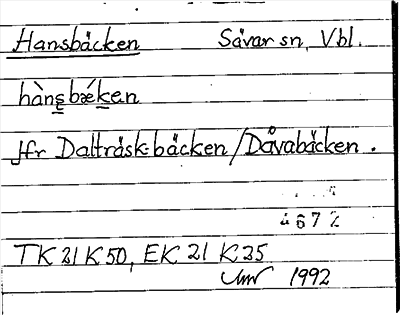 Hansbäcken Sävar sn, Vbl.
hàns̳bǽk̳en
Jfr Dalträsk-bäcken/Dåvabäcken.
4672
TK 21 K 50, EK 21 K 25
1992